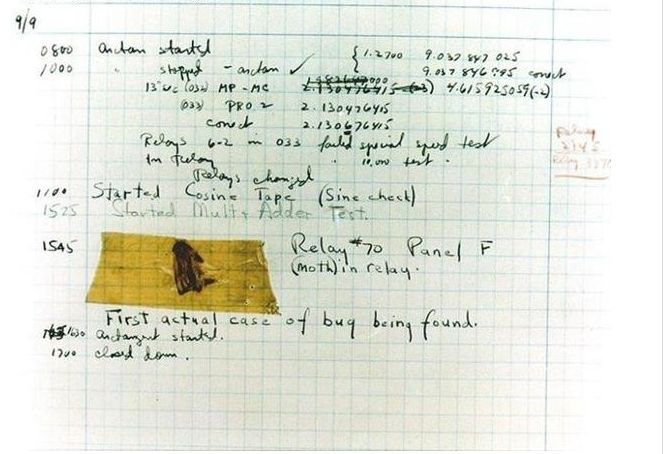 9/9
0800 arctan started { 1.2700 9.037 847 025
1000 " stopped - arctan ✓ { 9.037 846 995 correct
13" uc (032) MP - MC 2.130476415 (-3) 4.615925059(-2)
(033) PRO 2 2.130476415
correct 2.130676415
Relays 6-2 in 033 failed special speed test
in relay " 10,000 test .
Relays changed
Relay
2145
Relay 337
1100 Started Cosine Tape (Sine check)
1525 Started Mult+ Adder Test.
1545 Relay #70 Panel F
(moth) in relay.
First actual case of bug being found.
1630 arctangent started.
1700 closed down.